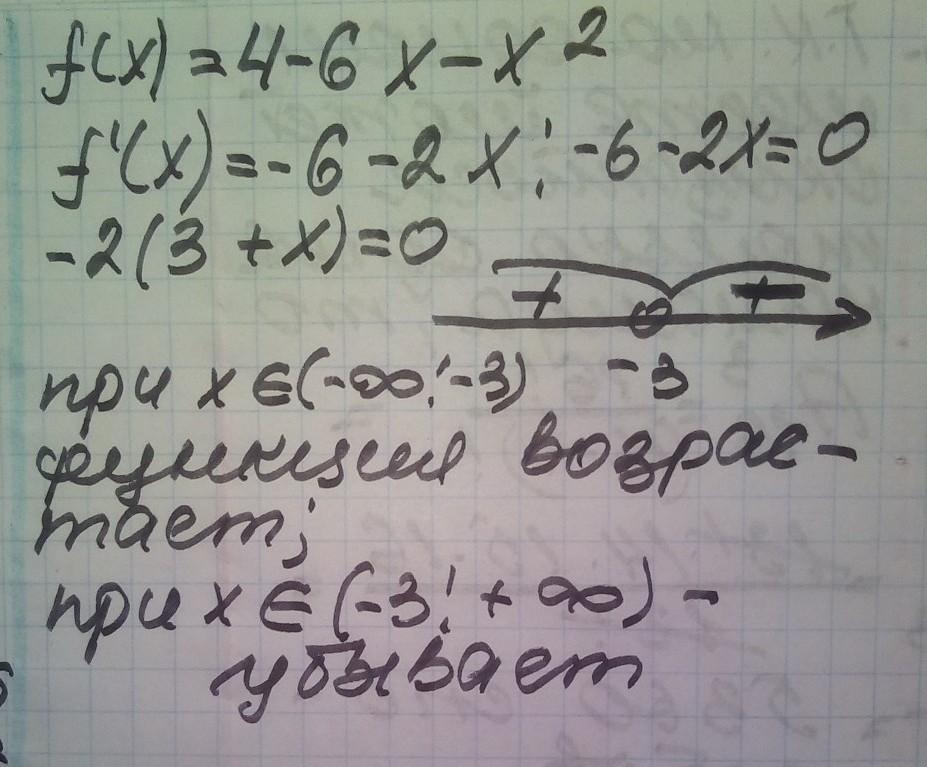 f(x) = 4 - 6x - x²
f'(x) = -6 - 2x; -6 - 2x = 0
-2(3 + x) = 0
+ -
-3
при x ∈ (-∞; -3)
функция возрас-
тает;
при x ∈ (-3; +∞) -
убывает